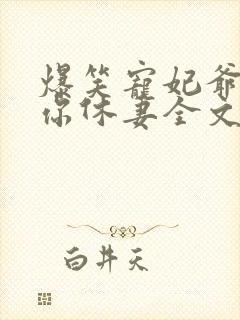 爆笑宠妃爷
你休妻全文
白井天